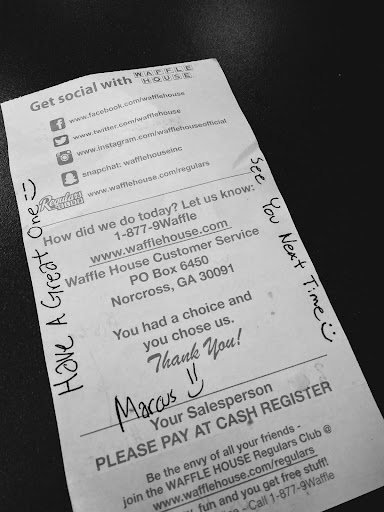 Get social with WAFFLE HOUSE
www.facebook.com/wafflehouse
www.twitter.com/wafflehouse
www.instagram.com/wafflehouseofficial
snapchat: wafflehouseinc
Regulars CLUB www.wafflehouse.com/regulars
Have A Great One
See You Next Time
How did we do today? Let us know:
1-877-9Waffle
www.wafflehouse.com
Waffle House Customer Service
PO Box 6450
Norcross, GA 30091
You had a choice and
you chose us.
Thank You!
Marcus
Your Salesperson
PLEASE PAY AT CASH REGISTER
Be the envy of all your friends -
join the WAFFLE HOUSE Regulars Club @
www.wafflehouse.com/regulars
fun and you get free stuff!
- Call 1-877-9Waffle